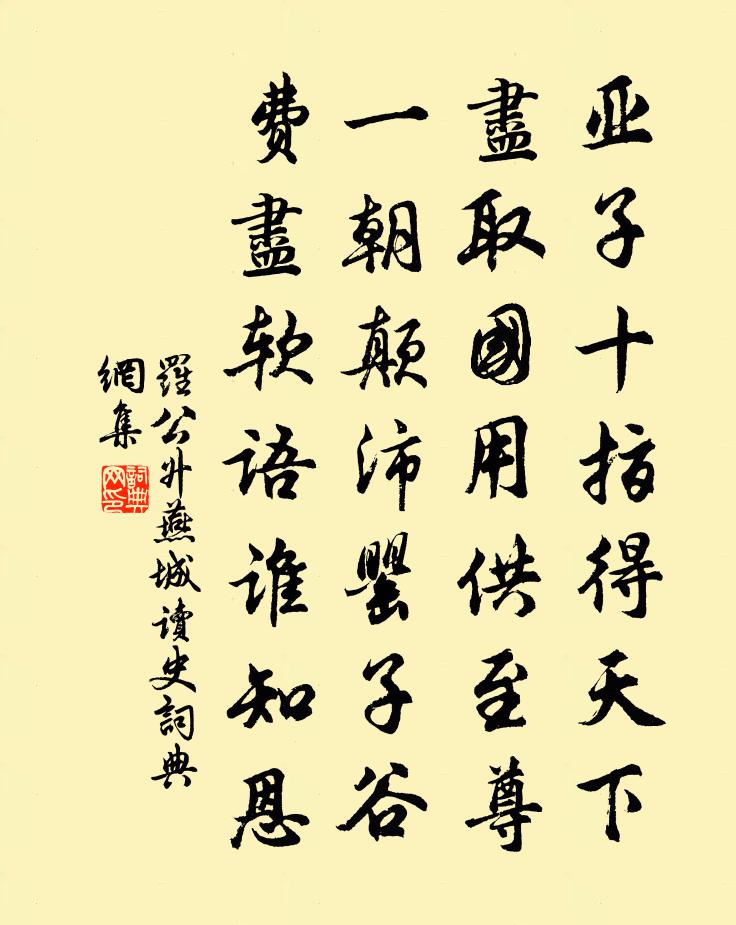 亚子十指得天下
盡取國用供至尊
一朝顛沛罌子谷
費盡软語谁知恩
羅公升燕城讀史詞典
網集
詞典
网印